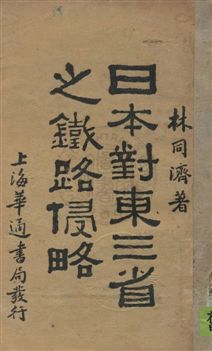 林同濟著
日本對東三省
之鐵路侵略
上海華通書局發行